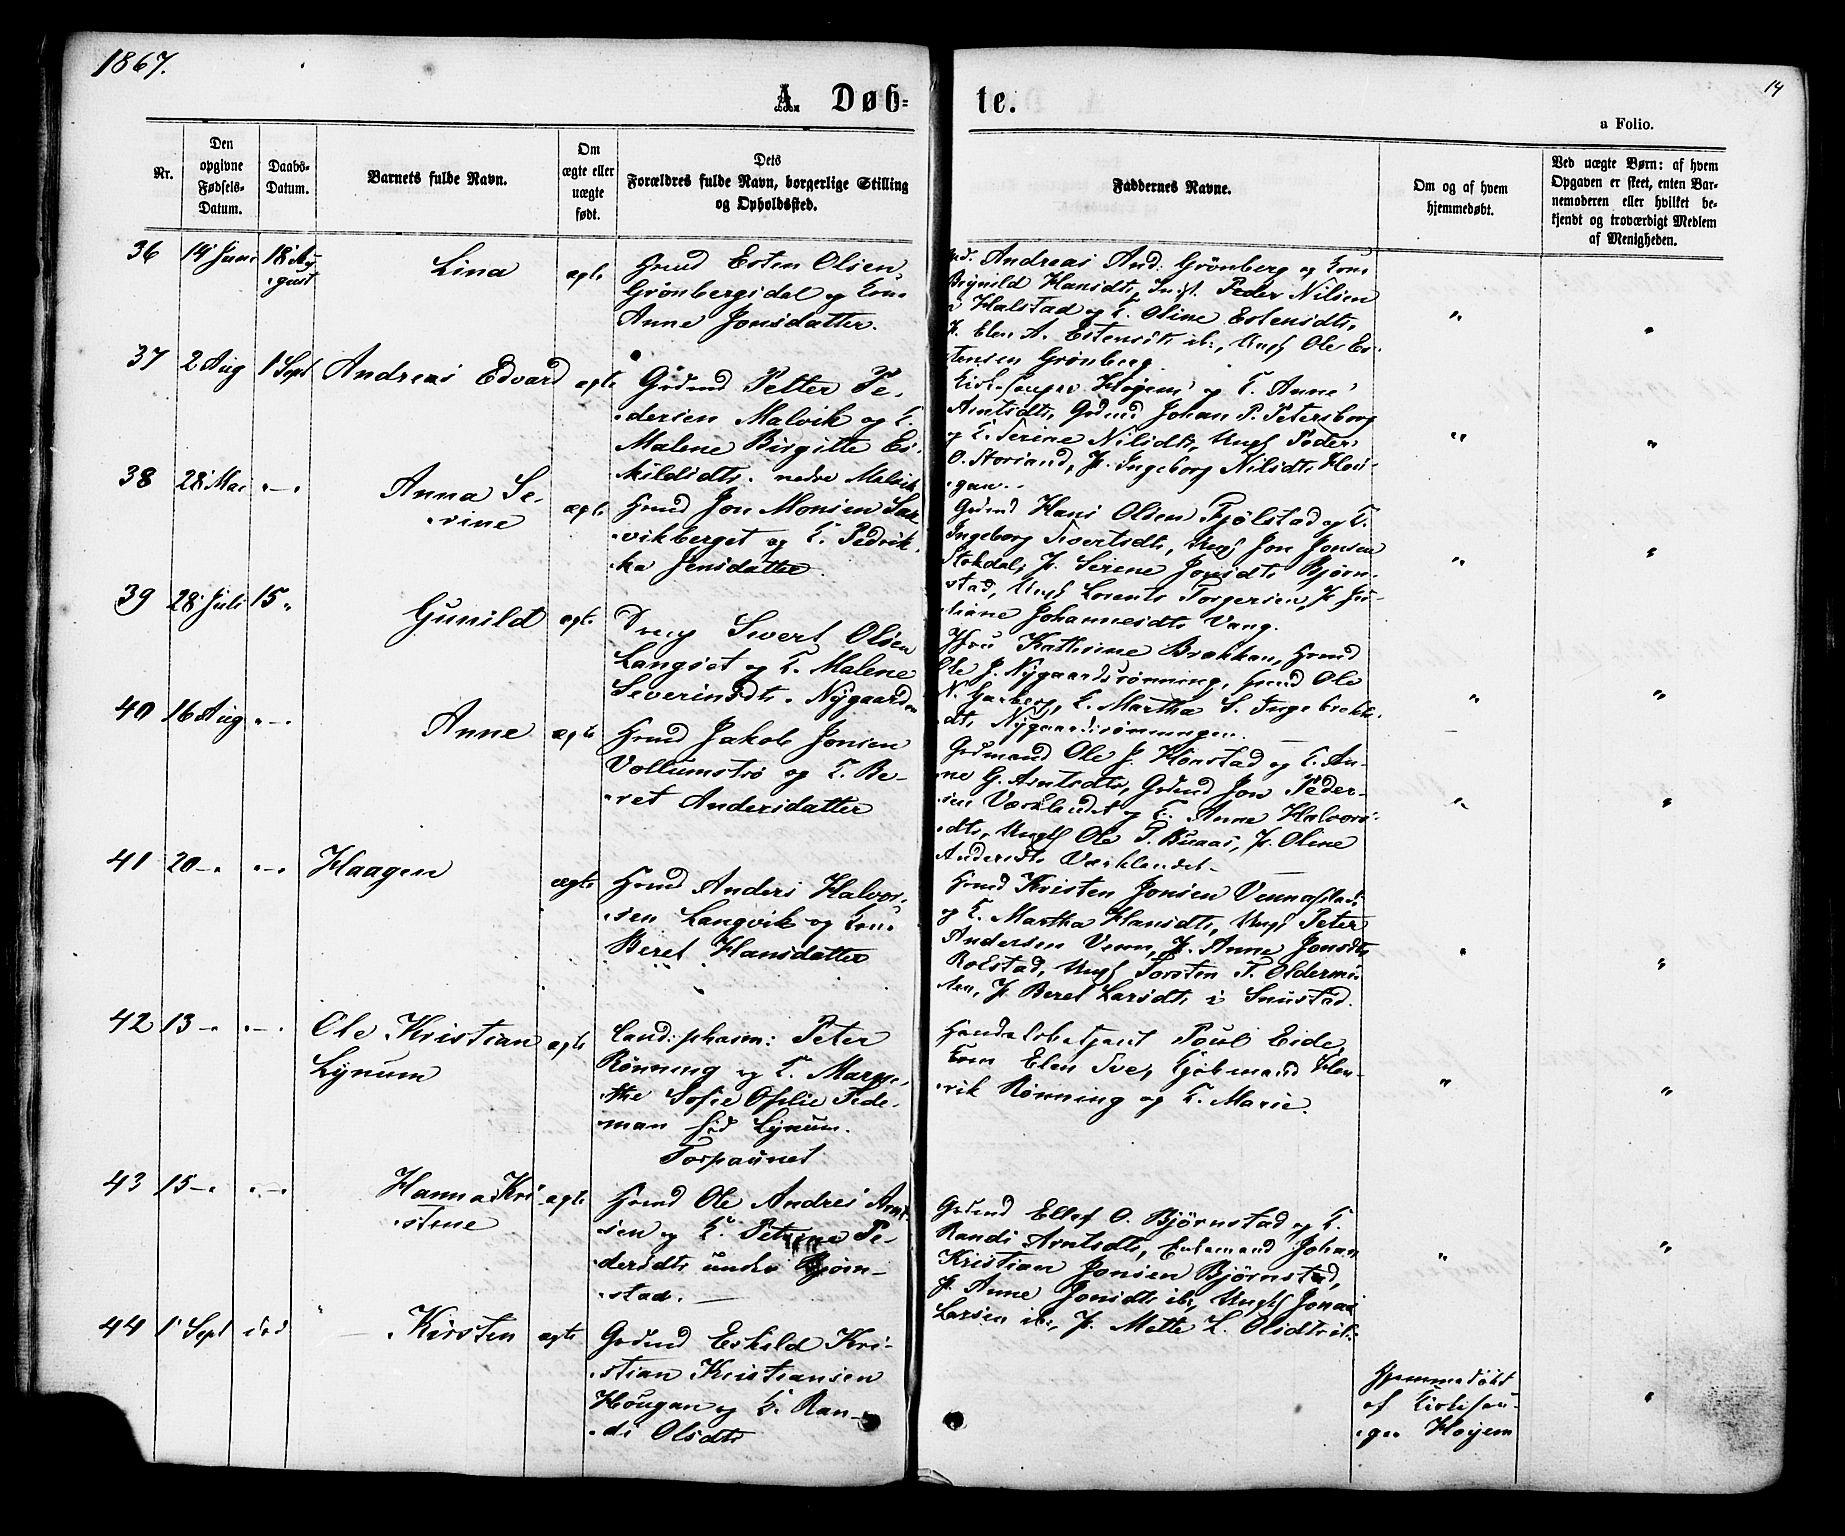 1867.
14
A. Døb-
te.
a Folio.
Nr.
Den
opgivne
Fødsels-
Datum.
Daabs-
Datum.
Barnets fulde Navn.
Om
ægte eller
uægte
født.
Dets
Forældres fulde Navn, borgerlige Stilling
og Opholdssted.
Faddernes Navne.
Om og af hvem
hjemmedøbt.
Ved uægte Børn: af hvem
Opgaven er skeet, enten Bar-
nemoderen eller hvilket be-
kjendt og troværdigt Medlem
af Menigheden.
36
14 Juni
18 Au-
gust
Lina
ægte
Hmd Esten Olsen
Grønbergsdal og Kone
Anne Jonsdatter.
Andreas And: Grønberg og Kone
Hansdtr, Peder Nilsen
Halstad og K. Oline Estensdtr,
P. Elen A. Estensdtr ib:, Ungk Ole Es-
tensen Grønberg.
"
"
37
2 Aug
1 Sept
Andreas Edvard
ægte
Grdmd Petter Pe-
dersen Malvik og K.
Malene Birgitte Es-
kildsdtr. nedre Malvik
Kirkesanger Høyem og K. Anne
Arntsdtr, Grdmd Johan P. Petersborg
og K. Serine Nilsdtr, Ungk Peder
O. Storsand, P. Ingeborg Nilsdtr Hou-
gan.
"
"
38
28 Mai
"—"
Anna Se-
rine
ægte
Hmd Jon Monsen Sax
vikberget og K. Fedrik-
ka Jensdatter.
Grdmd Hans Olsen Fjølstad og K.
Ingeborg Sivertsdtr, Ungk Jon Jonsen
Stokdal, P. Serine Jonsdtr Bjørn-
stad, Ungk Lorents Torgersen, P. Ju-
liane Johannesdtr Vang.
"
"
39
28 Juli
15 "
Gunild
ægte
Dreng Sivert Olsen
Langset og K. Malene
Severinsdtr. Nygaarden
Kathrine Brækkan, Hmd
Ole J. Nygaardsrønning, Hmd Ole
N. Garberg, K. Martha S. Ingebrekt-
dtr Nygaardsrønningen.
"
"
40
16 Aug
"—"
Anne
ægte
Hmd Jakob Jonsen
Vollumstrø og K. Be-
ret Andersdatter
Grdmand Ole J. Hønstad og K. An-
ne G. Arntsdtr, Grdmd Jon Peder-
sen Værklandet og K. Anne Halvors-
dtr, Ungk Ole P. Buaas, P. Oline
Andersdtr Værklandet.
"
"
41
20 —"
"—"
Haagen
ægte
Hmd Anders Halvor-
sen Langvik og Kone
Beret Hansdatter
Hmd Kristen Jonsen Vennafstad
og K. Martha Hansdtr, Ungk Peter
Andersen Venn, P. Anne Jonsdtr
Rolstad, Ungk Torsten T. Oldermo-
en, P. Beret Larsdtr i Snustad.
"
"
42
13 —"
"—"
Ole Kristian
Lynum
ægte
Cand: pharm: Peter
Rønning og K. Margre-
the Sofie Ofelie Fede-
man fød Lynum.
Torpaunet
Handelsbetjent Poul Eide,
Kone Elen Tve, Kjøbmand Hen-
rik Rønning og K. Marie.
"
"
43
15 —"
"—"
Hanna Kri-
stine
ægte
Hmd Ole Andres Arnt-
sen og K. Petrine Pe-
dersdtr under Bjørn-
stad.
Grdmd Ellef O. Bjørnstad og K.
Randi Arntsdtr, Enkemand Johan
Kristian Jonsen Bjørnstad,
P. Anne Jonsdtr ib:, Ungk Jonas
Larsen ib:, P. Mette L. Olsdtr ib:
"
"
44
1 Sept
død
Kirsten
ægte
Grdmd Eskild Kri-
stian Kristiansen
Hougan og K. Ran-
di Olsdtr
Hjemmedøbt
af Kirkesan-
ger Høyem
"